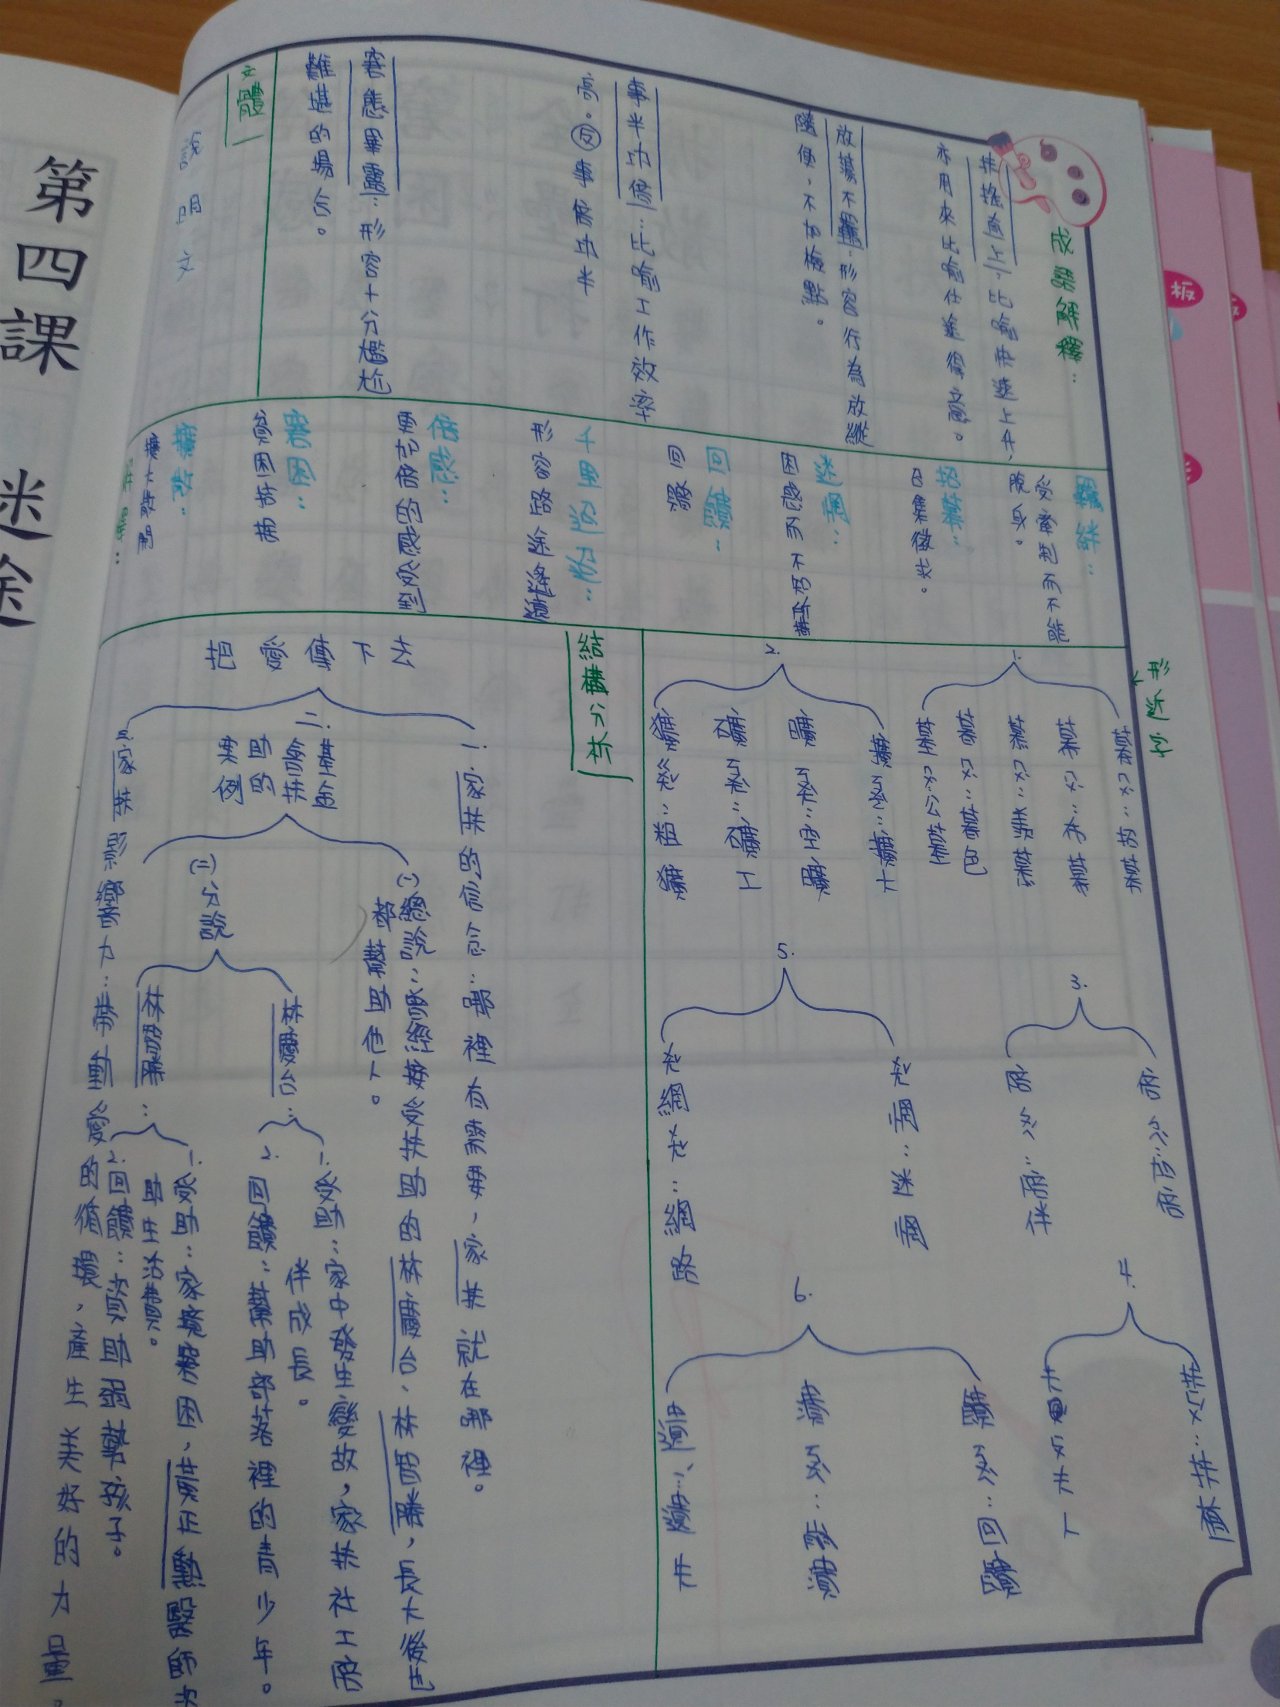 成語解釋：
扶搖直上：比喻快速上升，
亦用來比喻仕途得意。
放蕩不羈：形容行為放縱
隨便，不加檢點。
事半功倍：比喻工作效率
高。反事倍功半
窘態畢露：形容十分尷尬
難堪的場合。
文體
說明文
羈絆：
受牽制而不能
脫身。
招募：
召集徵求。
迷惘：
困惑而不知所措
回饋：
回贈
千里迢迢：
形容路途遙遠
倍感：
更加倍的感受到
窘困：
貧困拮据
擴散：
擴大散開
解釋：
形近字
1.
募ㄇㄨˋ：招募
幕ㄇㄨˋ：布幕
慕ㄇㄨˋ：羨慕
暮ㄇㄨˋ：暮色
墓ㄇㄨˋ：公墓
2.
擴ㄎㄨㄛˋ：擴大
曠ㄎㄨㄤˋ：空曠
礦ㄎㄨㄤˋ：礦工
獷ㄍㄨㄤˇ：粗獷
3.
陪ㄆㄟˊ：陪伴
4.
扶ㄈㄨˊ：扶植
夫ㄈㄨ：夫人
5.
惘：迷惘
網：網路
6.
饋ㄎㄨㄟˋ：回饋
潰ㄎㄨㄟˋ：崩潰
遺ㄧˊ：遺失
結構分析
把愛傳下去
一.家扶的信念：哪裡有需要，家扶就在哪裡。
二.基金會扶助的案例
(一)總說：曾經接受扶助的林慶台、林酉勝，長大後也
都幫助他人。
(二)分說
林慶台：
1.受助：家中發生變故，家扶社工陪
伴成長。
2.回饋：幫助部落裡的青少年。
林酉勝：
1.受助：家境窘困，黃正勳醫師資
助生活費。
2.回饋：資助弱勢孩子。
三.家扶影響力：帶動愛的循環，產生美好的力量。
第四課 迷途
板